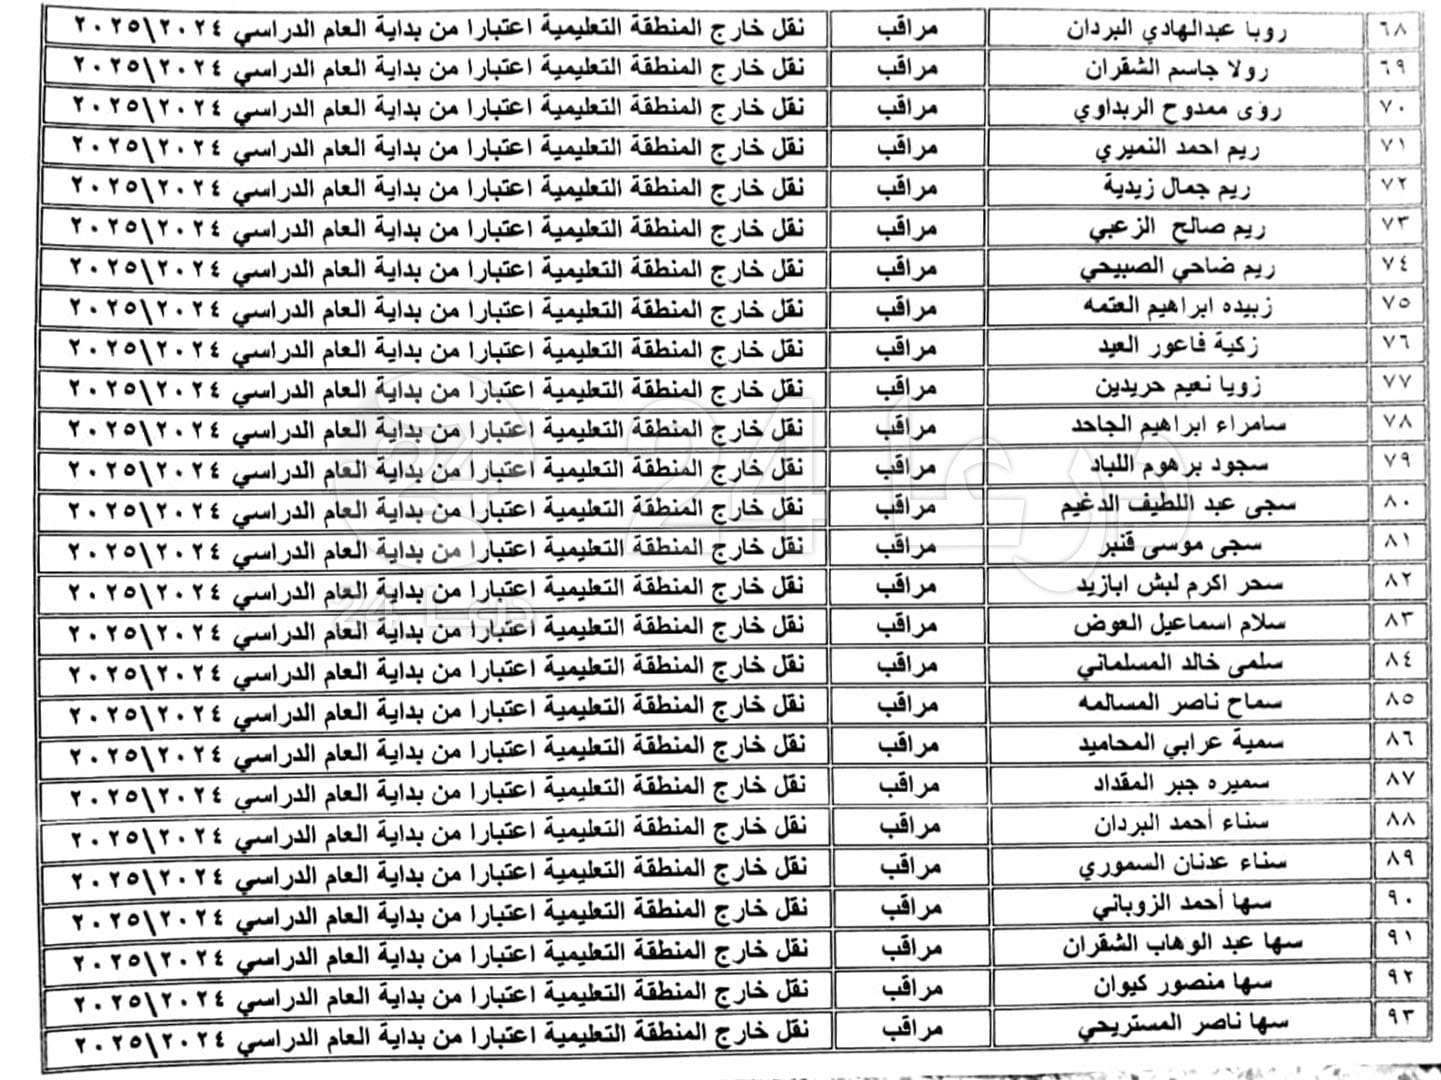 ٦٨ روبا عبدالهادي البردان مراقب نقل خارج المنطقة التعليمية اعتبارا من بداية العام الدراسي ٢٠٢٤\٢٠٢٥
٦٩ رولا جاسم الشقران مراقب نقل خارج المنطقة التعليمية اعتبارا من بداية العام الدراسي ٢٠٢٤\٢٠٢٥
٧٠ روى ممدوح الربداوي مراقب نقل خارج المنطقة التعليمية اعتبارا من بداية العام الدراسي ٢٠٢٤\٢٠٢٥
٧١ ريم احمد النميري مراقب نقل خارج المنطقة التعليمية اعتبارا من بداية العام الدراسي ٢٠٢٤\٢٠٢٥
٧٢ ريم جمال زيدية مراقب نقل خارج المنطقة التعليمية اعتبارا من بداية العام الدراسي ٢٠٢٤\٢٠٢٥
٧٣ ريم صالح الزعبي مراقب نقل خارج المنطقة التعليمية اعتبارا من بداية العام الدراسي ٢٠٢٤\٢٠٢٥
٧٤ ريم ضاحي الصبيحي مراقب نقل خارج المنطقة التعليمية اعتبارا من بداية العام الدراسي ٢٠٢٤\٢٠٢٥
٧٥ زبيده ابراهيم العتمه مراقب نقل خارج المنطقة التعليمية اعتبارا من بداية العام الدراسي ٢٠٢٤\٢٠٢٥
٧٦ زكية فاعور العيد مراقب نقل خارج المنطقة التعليمية اعتبارا من بداية العام الدراسي ٢٠٢٤\٢٠٢٥
٧٧ زويا نعيم حريدين مراقب نقل خارج المنطقة التعليمية اعتبارا من بداية العام الدراسي ٢٠٢٤\٢٠٢٥
٧٨ سامراء ابراهيم الجاحد مراقب نقل خارج المنطقة التعليمية اعتبارا من بداية العام الدراسي ٢٠٢٤\٢٠٢٥
٧٩ سجود برهوم اللباد مراقب نقل خارج المنطقة التعليمية اعتبارا من بداية العام الدراسي ٢٠٢٤\٢٠٢٥
٨٠ سجى عبد اللطيف الدغيم مراقب نقل خارج المنطقة التعليمية اعتبارا من بداية العام الدراسي ٢٠٢٤\٢٠٢٥
٨١ سجى موسى قنبر مراقب نقل خارج المنطقة التعليمية اعتبارا من بداية العام الدراسي ٢٠٢٤\٢٠٢٥
٨٢ سحر اكرم لبش ابازيد مراقب نقل خارج المنطقة التعليمية اعتبارا من بداية العام الدراسي ٢٠٢٤\٢٠٢٥
٨٣ سلام اسماعيل العوض مراقب نقل خارج المنطقة التعليمية اعتبارا من بداية العام الدراسي ٢٠٢٤\٢٠٢٥
٨٤ سلمى خالد المسلماني مراقب نقل خارج المنطقة التعليمية اعتبارا من بداية العام الدراسي ٢٠٢٤\٢٠٢٥
٨٥ سماح ناصر المسالمه مراقب نقل خارج المنطقة التعليمية اعتبارا من بداية العام الدراسي ٢٠٢٤\٢٠٢٥
٨٦ سمية عرابي المحاميد مراقب نقل خارج المنطقة التعليمية اعتبارا من بداية العام الدراسي ٢٠٢٤\٢٠٢٥
٨٧ سميره جبر المقداد مراقب نقل خارج المنطقة التعليمية اعتبارا من بداية العام الدراسي ٢٠٢٤\٢٠٢٥
٨٨ سناء أحمد البردان مراقب نقل خارج المنطقة التعليمية اعتبارا من بداية العام الدراسي ٢٠٢٤\٢٠٢٥
٨٩ سناء عدنان السموري مراقب نقل خارج المنطقة التعليمية اعتبارا من بداية العام الدراسي ٢٠٢٤\٢٠٢٥
٩٠ سها أحمد الزوباني مراقب نقل خارج المنطقة التعليمية اعتبارا من بداية العام الدراسي ٢٠٢٤\٢٠٢٥
٩١ سها عبد الوهاب الشقران مراقب نقل خارج المنطقة التعليمية اعتبارا من بداية العام الدراسي ٢٠٢٤\٢٠٢٥
٩٢ سها منصور كيوان مراقب نقل خارج المنطقة التعليمية اعتبارا من بداية العام الدراسي ٢٠٢٤\٢٠٢٥
٩٣ سها ناصر المستريحي مراقب نقل خارج المنطقة التعليمية اعتبارا من بداية العام الدراسي ٢٠٢٤\٢٠٢٥
درعا 24
درعا 24